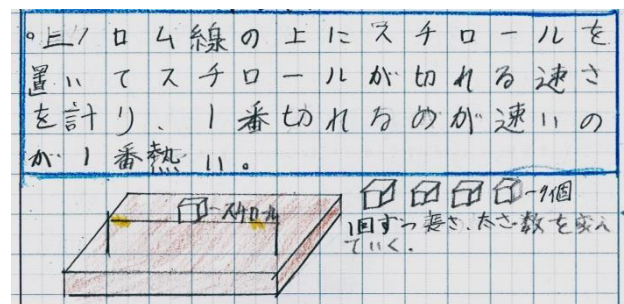 。ニクロム線の上にスチロールを
置いてスチロールが切れる速さ
を計り、1番切れるめが速いの
が1番熱い。
スチロール
9個
1回ずつ長さ、太さ、数を変え
ていく。